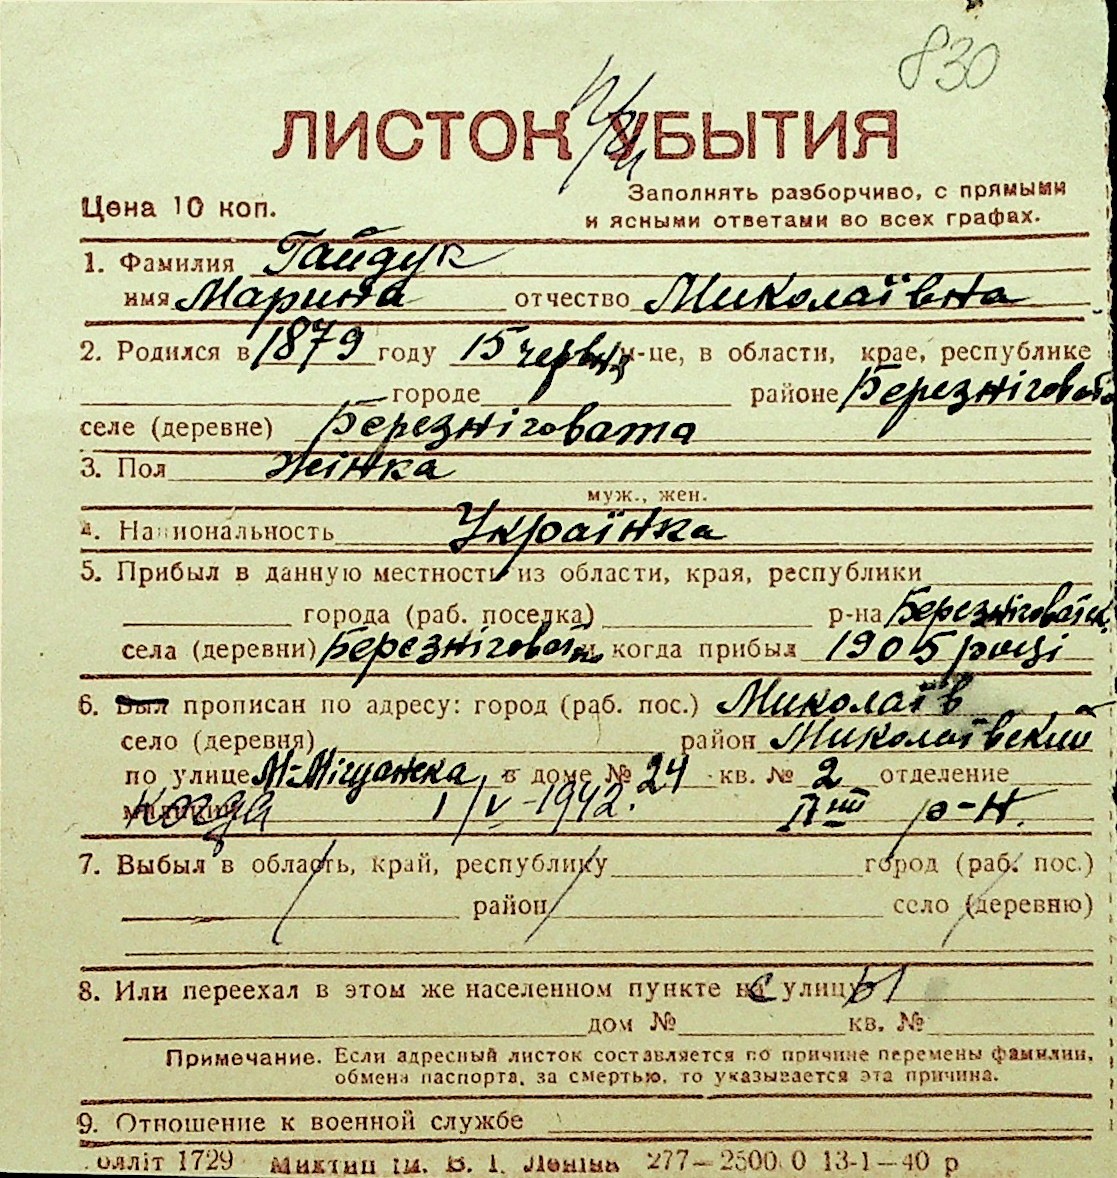 830
ЛИСТОК УБЫТИЯ
Цена 10 коп.
Заполнять разборчиво, с прямыми
и ясными ответами во всех графах.
1. Фамилия Гайдук
имя Марина отчество Миколаївна
2. Родился в 1879 году 15 червня м-це, в области, крае, республике
городе районе Березніговата
селе (деревне) Березніговата
3. Пол Жінка
муж., жен.
4. Национальность Українка
5. Прибыл в данную местность из области, края, республики
города (раб. поселка) р-на Березніговатск.
села (деревни) Березніговата и когда прибыл 1905 році
6. Был прописан по адресу: город (раб. пос.) Миколаїв
село (деревня) район Миколаївский
по улице М-Міщанска в доме № 24 кв. № 2 отделение
милиции Когда 1/V-1942. II р-н.
7. Выбыл в область, край, республику город (раб. пос.)
район село (деревню)
8. Или переехал в этом же населенном пункте на улицу
дом № кв. №
Примечание. Если адресный листок составляется по причине перемены фамилии,
обмена паспорта, за смертью, то указывается эта причина.
9. Отношение к военной службе
олліт 1729 Миктип ім. В. І. Леніна 277—2500 0 13-1—40 р